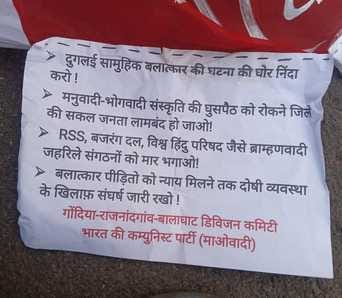 ➤ दुगलई सामुहिक बलात्कार की घटना की घोर निंदा
करो !
➤ मनुवादी-भोगवादी संस्कृति की घुसपैठ को रोकने जिले
की सकल जनता लामबंद हो जाओ!
➤ RSS, बजरंग दल, विश्व हिंदु परिषद जैसे ब्राम्हणवादी
जहरिले संगठनों को मार भगाओ!
➤ बलात्कार पीड़ितो को न्याय मिलने तक दोषी व्यवस्था
के खिलाफ़ संघर्ष जारी रखो !
गोंदिया-राजनांदगांव-बालाघाट डिविजन कमिटी
भारत की कम्युनिस्ट पार्टी (माओवादी)